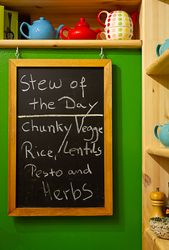 Stew of
the Day
Chunky Veggie
Rice/Lentils
Pesto and
Herbs